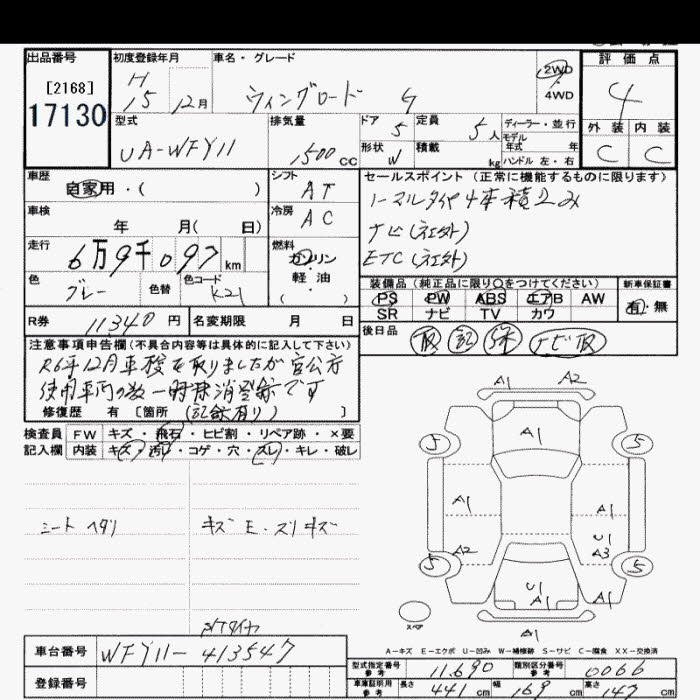 出品番号 初度登録年月 車名・グレード 評価点
[2168] H 15 12月 ウィングロード G 2WD 4WD 4
17130
型式 排気量 ドア 5 定員 5人 ディーラー・並行 外装 内装
UA-WFY11 1500cc 形状 W 積載 kg モデル年式 年 ハンドル 左・右 C C
車歴 シフト セールスポイント(正常に機能するものに限ります)
自家用・( ) AT ノーマルタイヤ4本積込み
車検 年 月( 日) 冷房 AC ナビ(社外)
走行 6万9千097km 燃料 ガソリン 軽油 ( ) ETC(社外)
色 グレー 色替 色コード K21
装備品(純正品に限り○をつけてください) 新車保証書
PS PW ABS エアB AW 有・無
SR ナビ TV カワ
R券 11340円 名変期限 月 日 後日品 取 記 保 ナビ取
注意事項申告欄(不具合内容等は具体的に記入して下さい)
R6年12月車検を取りましたが官公庁
使用車両の為一時抹消登録です
修復歴 有[箇所 (記録有り) ]
検査員 FW キズ・飛石・ヒビ割・リペア跡・×要
記入欄 内装 キズ・汚れ・コゲ・穴・スレ・キレ・破レ
シートヘタリ キズ E・スリキズ
A1 A2
A1
5 5
A1 A1
U1
A2 A3
5 5
U1
A1 A1
スペア
A1
A-キズ E-エクボ U-凹み W-補修跡 S-サビ C-腐食 XX-交換済
車台番号 WFY11-413547
登録番号
型式指定番号 参考 11690 類別区分番号 参考 0066
車庫証明用 参考 長さ 441cm 幅 169cm 高さ 147cm